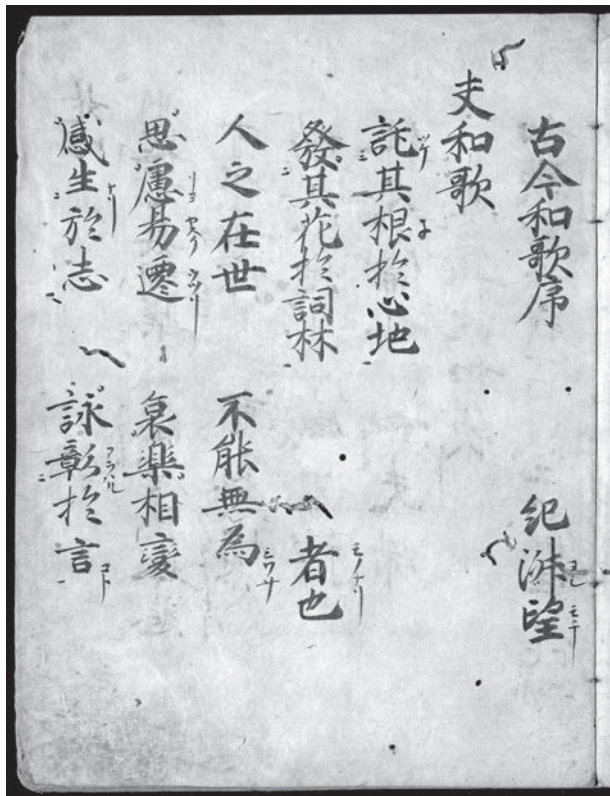 古今和歌序 紀淑望
夫和歌
託其根於心地
發其花於詞林 者也
人之在世 不能無為
思慮易遷 哀樂相變
感生於志 詠彰於言